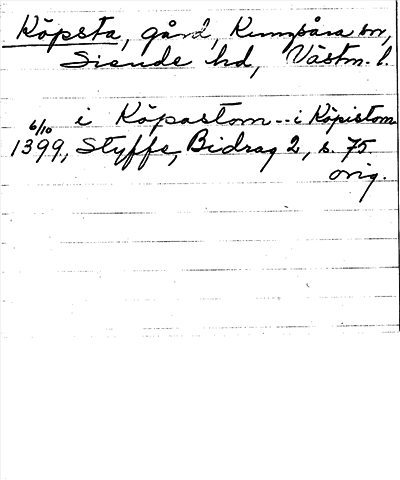 Köpsta, gård, Kungsåra sn,
Siende hd, Västm. l.
i Köpastom -- i Köpistom
6/10 1399, Styffe, Bidrag 2, s. 75
orig.